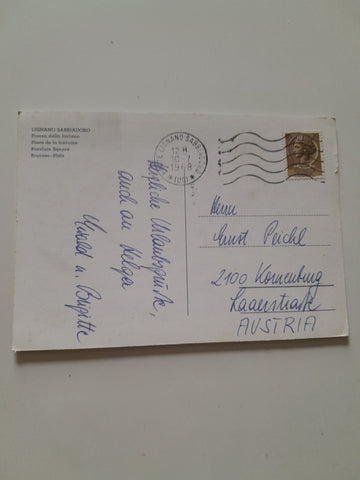 LIGNANO SABBIADORO
Piazza della fontana
Place de la fontaine
Fountain Square
Brunnen-Platz
LIGNANO SABB
12 H
10-7
1968
(UD)
Herzliche Urlaubsgrüße,
auch an Helga
Harald u. Brigitte
Herrn
Ernst Peichl
2100 Korneuburg
Laaerstraße
AUSTRIA